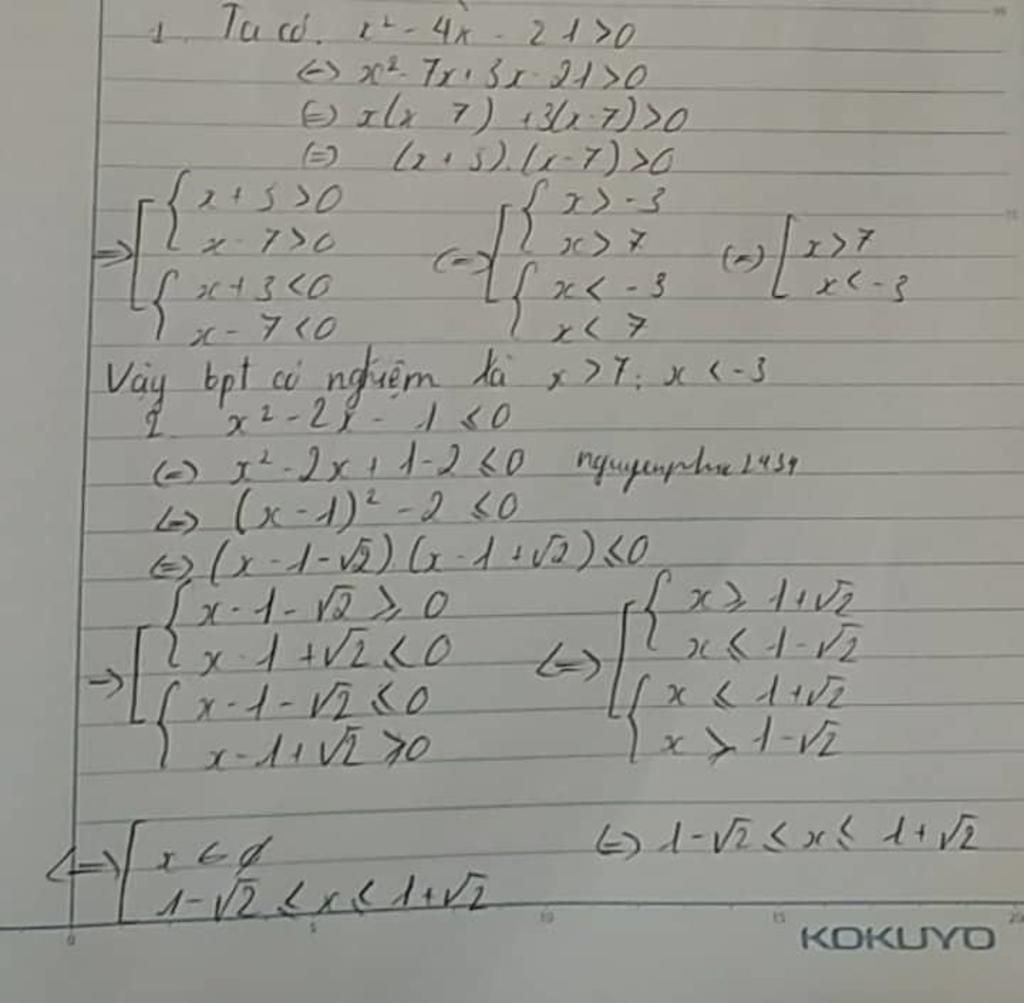 1. Ta có. x² - 4x - 21 > 0
(=) x² - 7x + 3x - 21 > 0
(=) x(x 7) + 3(x - 7) > 0
(=) (x + 3).(x - 7) > 0
=> [ { x + 3 > 0 (=) [ { x > -3 (=) [ x > 7
x - 7 > 0 x > 7 x < -3
{ x + 3 < 0 { x < -3
x - 7 < 0 x < 7
Vậy bpt có nghiệm là x > 7; x < -3
2. x² - 2x - 1 ≤ 0
(=) x² - 2x + 1 - 2 ≤ 0 nguyenphuc1434
(=) (x - 1)² - 2 ≤ 0
(=) (x - 1 - √2).(x - 1 + √2) ≤ 0
=> [ { x - 1 - √2 ≥ 0 <=> [ { x ≥ 1 + √2
x - 1 + √2 ≤ 0 x ≤ 1 - √2
{ x - 1 - √2 ≤ 0 { x ≤ 1 + √2
x - 1 + √2 ≥ 0 x ≥ 1 - √2
<=> [ x ∈ ∅ (=) 1 - √2 ≤ x ≤ 1 + √2
1 - √2 ≤ x ≤ 1 + √2
0 5 10 15 20
KOKUYO